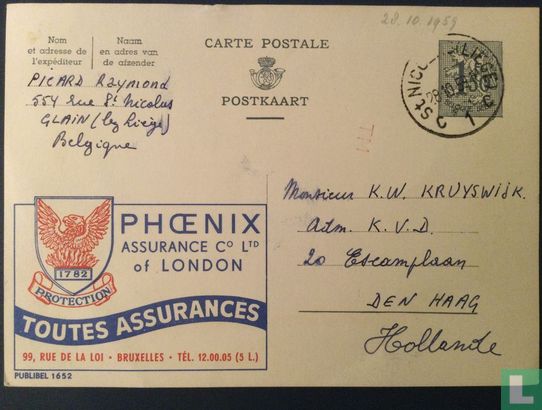 28.10.1959
Nom et adresse de l'expéditeur
Naam en adres van de afzender
CARTE POSTALE
POSTKAART
PICARD Raymond
554 rue St Nicolas
GLAIN (lez Liège)
Belgique
Monsieur K.W. KRUYSWIJK.
Adm. K.V.D.
20 Escamplaan
DEN HAAG
Hollande
PHŒNIX
ASSURANCE Co LTD
of LONDON
1782
PROTECTION
TOUTES ASSURANCES
99, RUE DE LA LOI • BRUXELLES • TÉL. 12.00.05 (5 L.)
PUBLIBEL 1652